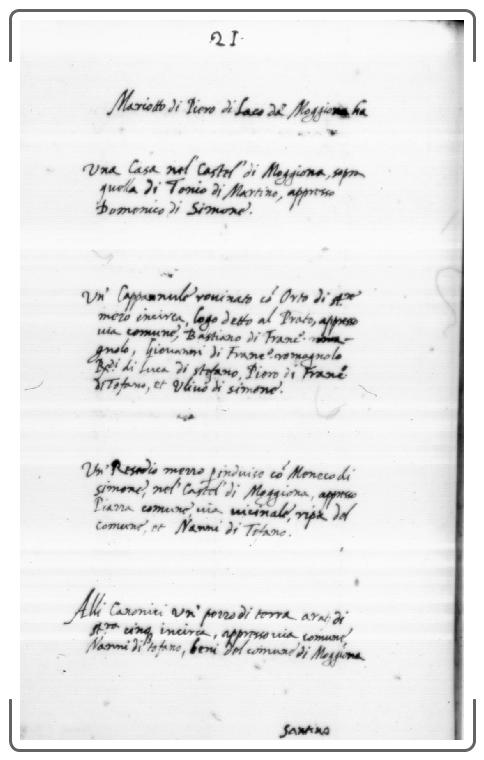 21.
Mariotto di Piero di Laco da Moggiona ha
Una Casa nel Castel di Moggiona, sopra
quella di Tonio di Martino, appresso
Domenico di Simone.
Un' Cappannule rovinato cõ Orto di st.re
mezo incirca, logo detto al Prato, appresso
via comune, Bastiano di Franc.º roma-
gnolo, Giovanni di Franc.º romagnolo
di Luca di stefano, Piero di Franc.º
di Tofano, et Ulivo di simone.
Un' Resedio mezzo indiviso cõ Meneco di
simone, nel Castel di Moggiona, appresso
Piazza comune, via vicinale, ripa del
comune, et Nanni di Tofano.
Alli Canonici Un' pezzo di terra arat: di
st.ra cinq incirca, appresso via comune
Nanni di tofano, beni del comune di Moggiona
Santino